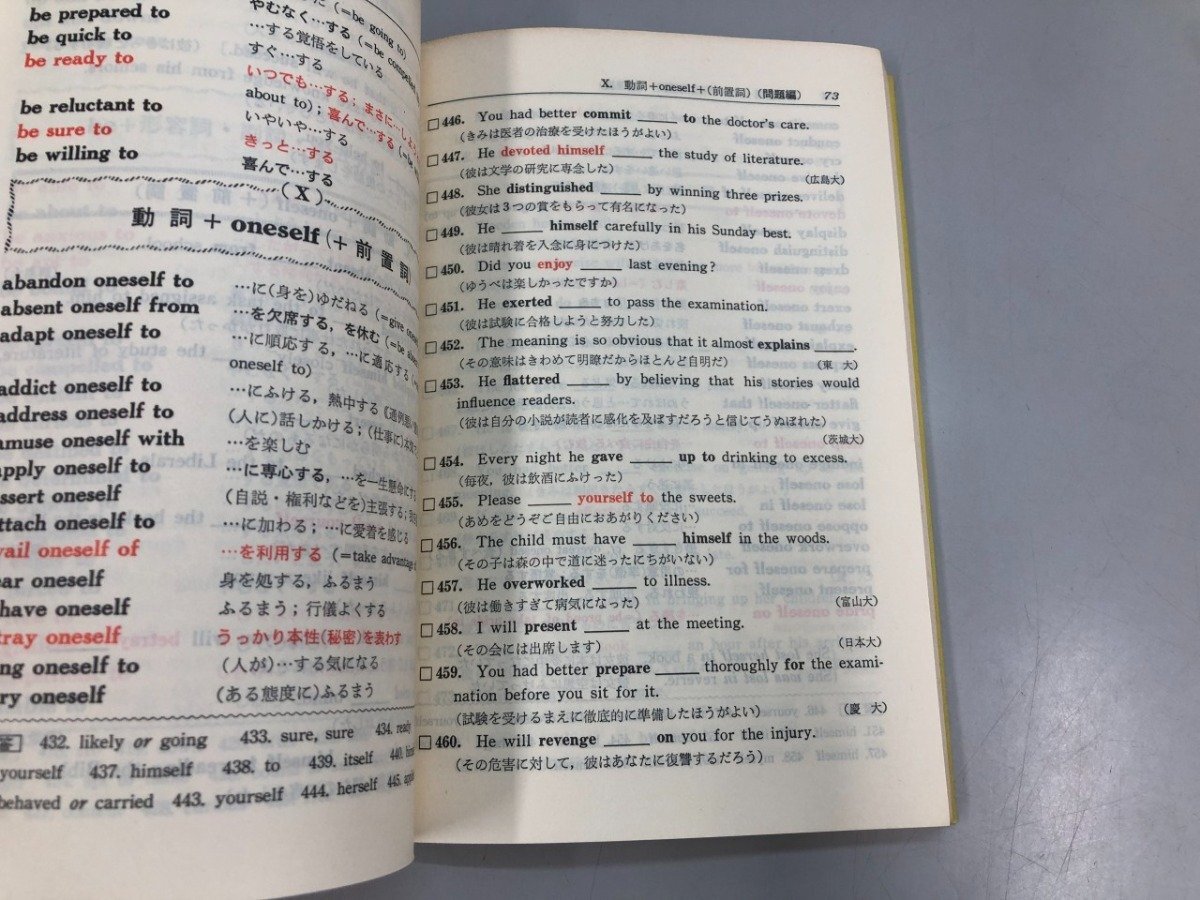 be prepared to
be quick to
be ready to
be reluctant to
be sure to
be willing to
やむなく…する(=be
…する覚悟をしている
すぐ…する
いつでも…する;まさに…
about to);喜んで…する
いやいや…する
きっと…する
喜んで…する
(X)
動詞+oneself(+前置詞)
abandon oneself to
…に(身を)ゆだねる
absent oneself from
…を欠席する,を休む
adapt oneself to
…に順応する,…に適応する
oneself to)
addict oneself to
…にふける,熱中する
address oneself to
(人に)話しかける;(仕事に)
amuse oneself with
…を楽しむ
apply oneself to
…に専心する,…を一生懸命にする
ssert oneself
(自説・権利などを)主張する;
ttach oneself to
…に加わる;…に愛着を感じる
vail oneself of
…を利用する(=take advantage
ear oneself
身を処する,ふるまう
have oneself
ふるまう;行儀よくする
tray oneself
うっかり本性(秘密)を表わす
ng oneself to
(人が)…する気になる
ry oneself
(ある態度に)ふるまう
432. likely or going 433. sure, sure 434. ready
yourself 437. himself 438. to 439. itself 440.
behaved or carried 443. yourself 444. herself 445.
X. 動詞+oneself+(前置詞)(問題編) 73
□446. You had better commit ____ to the doctor's care.
(きみは医者の治療を受けたほうがよい)
□447. He devoted himself ____ the study of literature.
(彼は文学の研究に専念した) (広島大)
□448. She distinguished ____ by winning three prizes.
(彼女は3つの賞をもらって有名になった)
□449. He ____ himself carefully in his Sunday best.
(彼は晴れ着を入念に身につけた)
□450. Did you enjoy ____ last evening?
(ゆうべは楽しかったですか)
□451. He exerted ____ to pass the examination.
(彼は試験に合格しようと努力した)
□452. The meaning is so obvious that it almost explains ____.
(その意味はきわめて明瞭だからほとんど自明だ) (東 大)
□453. He flattered ____ by believing that his stories would
influence readers.
(彼は自分の小説が読者に感化を及ぼすだろうと信じてうぬぼれた)
(茨城大)
□454. Every night he gave ____ up to drinking to excess.
(毎夜,彼は飲酒にふけった)
□455. Please ____ yourself to the sweets.
(あめをどうぞご自由におあがりください)
□456. The child must have ____ himself in the woods.
(その子は森の中で道に迷ったにちがいない)
□457. He overworked ____ to illness.
(彼は働きすぎて病気になった) (富山大)
□458. I will present ____ at the meeting.
(その会には出席します) (日本大)
□459. You had better prepare ____ thoroughly for the exami-
nation before you sit for it.
(試験を受けるまえに徹底的に準備したほうがよい) (慶 大)
□460. He will revenge ____ on you for the injury.
(その危害に対して,彼はあなたに復讐するだろう)